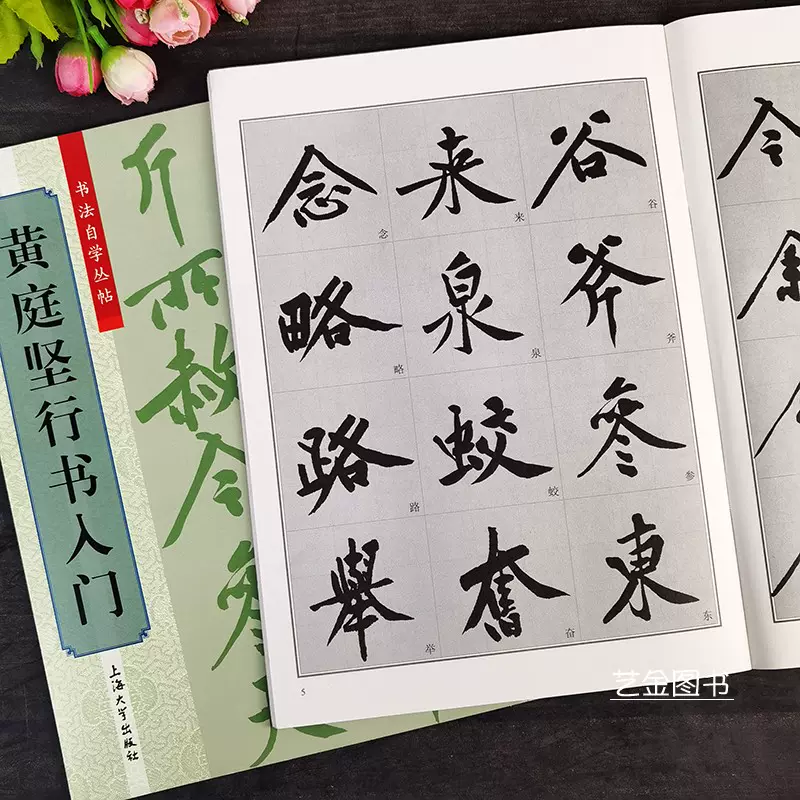 书法自学丛帖
黄庭坚行书入门
上海大学出版社
斤所赦令参天
念 来 谷
念 来 谷
略 泉 斧
略 泉 斧
路 蛟 參
路 蛟 参
舉 奮 東
举 奋 东
5
令
艺金图书